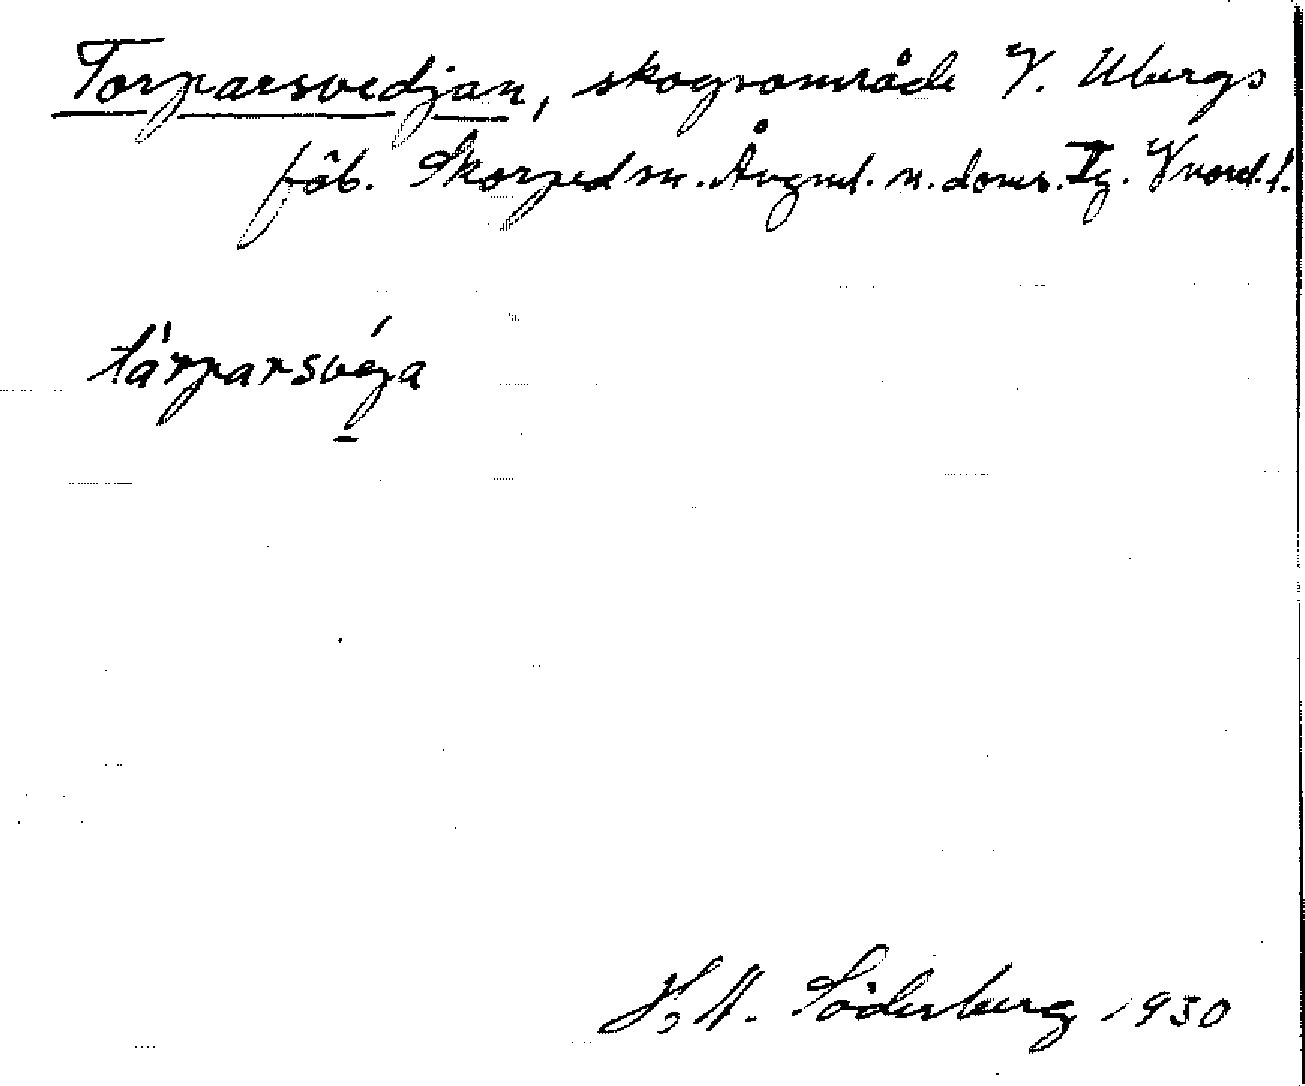 Torparsvedjan, skogsområde V. Ubergs
fäb. Skorped sn. Ångml. n. doms. Tg. Vnorrl.
tårparsvéja
H. A. Söderberg 1930